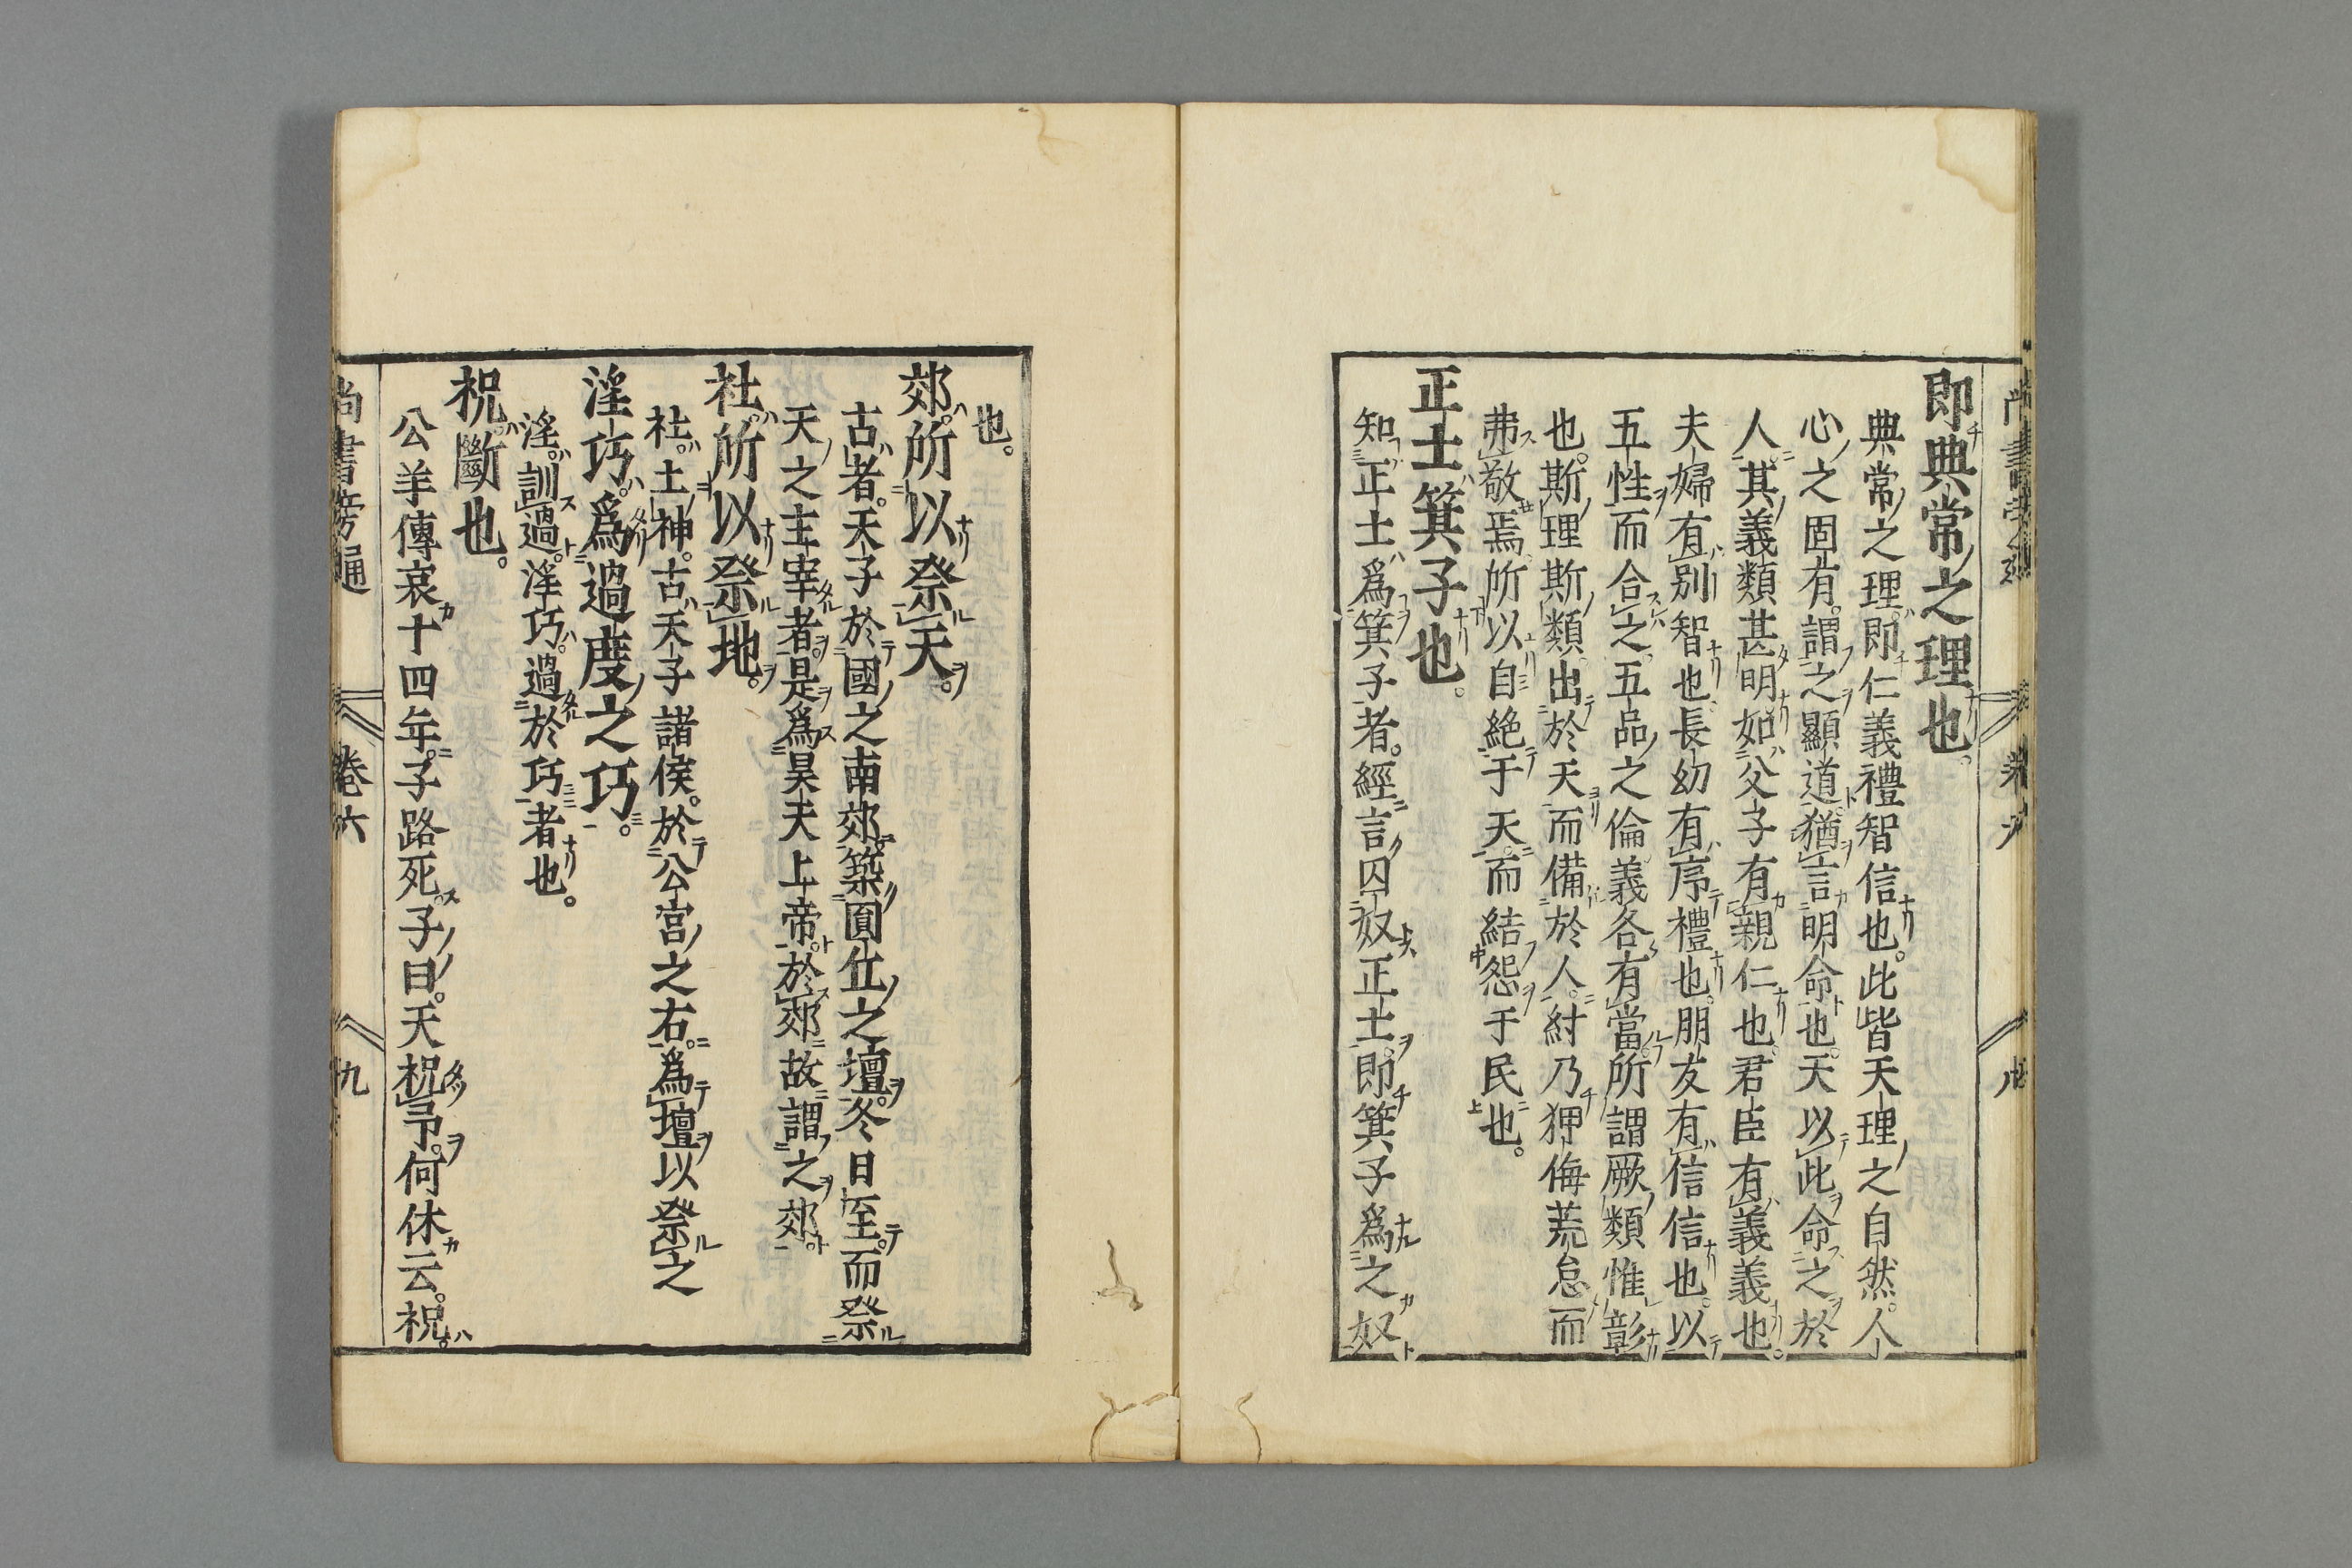 即典常之理也。
典常之理。即仁義禮智信也。此皆天理之自然。人
心之固有。謂之顯道。猶言明命也。天以此命之於
人。其義類甚明。如父子有親仁也。君臣有義義也。
夫婦有別智也。長幼有序禮也。朋友有信信也。以
五性而合之五品之倫義各有當。所謂厥類惟彰
也。斯理斯類。出於天而備於人。紂乃狎侮荒怠而
弗敬焉。所以自絶于天。而結怨于民也。
正士箕子也。
知正士爲箕子者。經言囚奴正士。即箕子爲之奴
也。
郊。所以祭天。
古者。天子於國之南郊。築圓丘之壇。冬日至。而祭
天之主宰者。是爲昊天上帝。於郊故謂之郊。
社。所以祭地。
社。土神。古天子諸侯。於公宮之右。爲壇以祭之
淫巧。爲過度之巧。
淫。訓過。淫巧。過於巧者也。
祝斷也。
公羊傳哀十四年。子路死。子曰。天祝予。何休云。祝。
尚書旁通 卷六 九